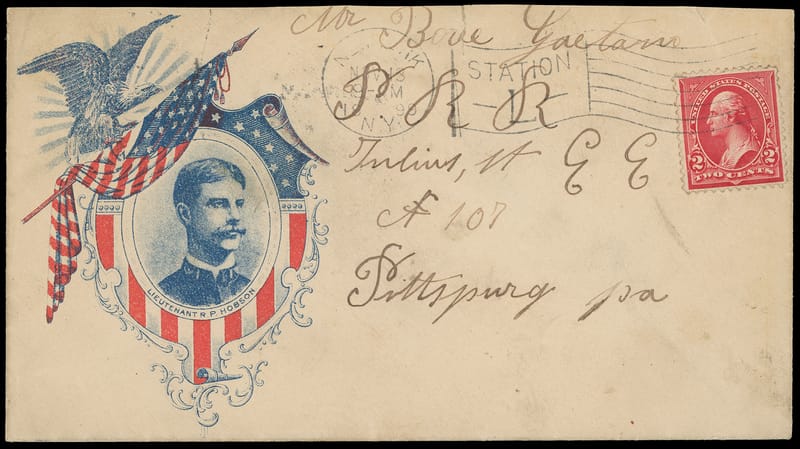 Mr Bove Gaetano
P. R. R
Julius, st E E
№ 107
Pittspurg pa
N.Y.
STATION
L
UNITED STATES POSTAGE
2 2
TWO CENTS
LIEUTENANT R P HOBSON